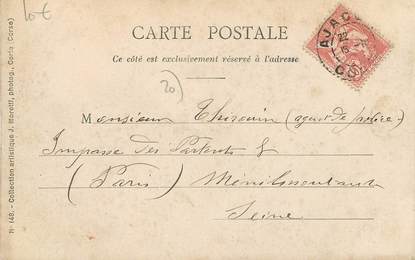 10 €
CARTE POSTALE
Ce côté est exclusivement réservé à l'adresse
AJACC
20
Monsieur Thirouin (agent de police)
Impasse des Partants 8
(Paris) Ménilmontant
Seine
N° 148. - Collection artistique J. Moretti, photog., Corte (Corse)